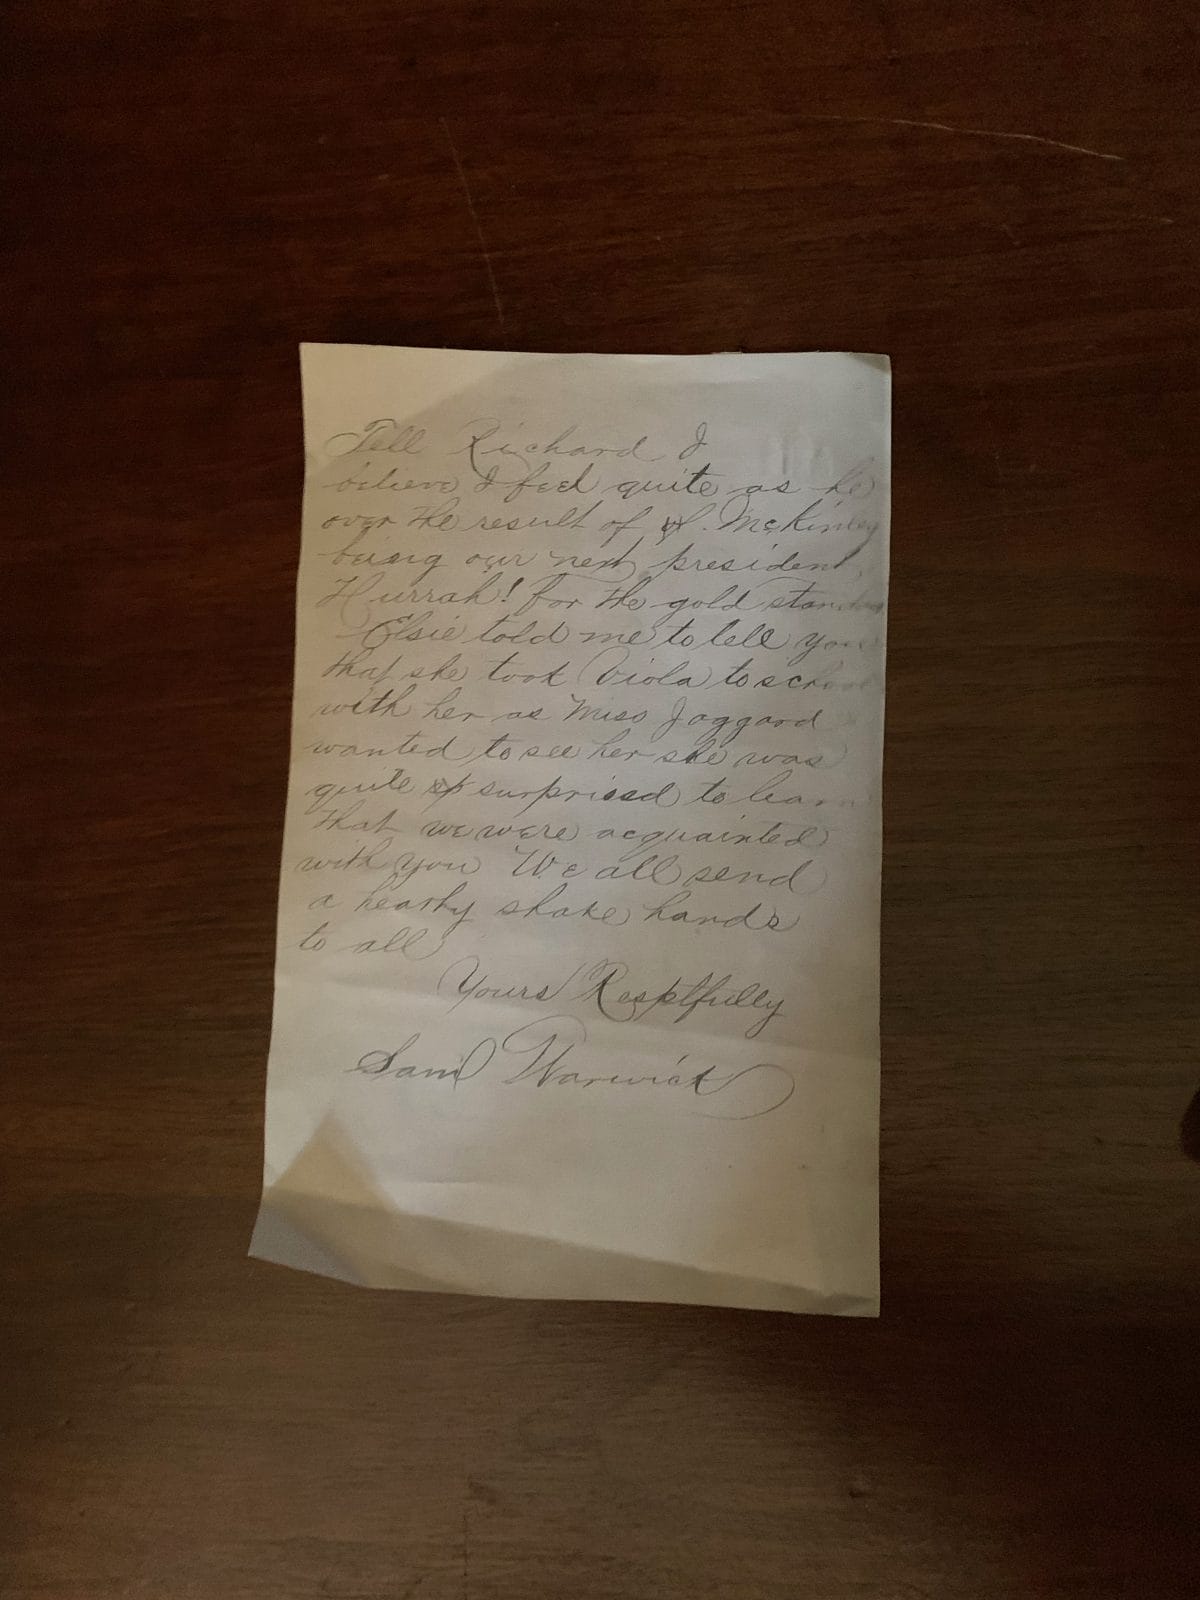 Tell Richard I
believe I feel quite as he
over the result of Mckinley
being our next president
Hurrah! for the gold standard
Elsie told me to tell you
that she took Viola to school
with her as Miss Jaggard
wanted to see her she was
quite surprised to learn
that we were acquainted
with you We all send
a hearty shake hands
to all
Yours Resptfully
Saml Warwick